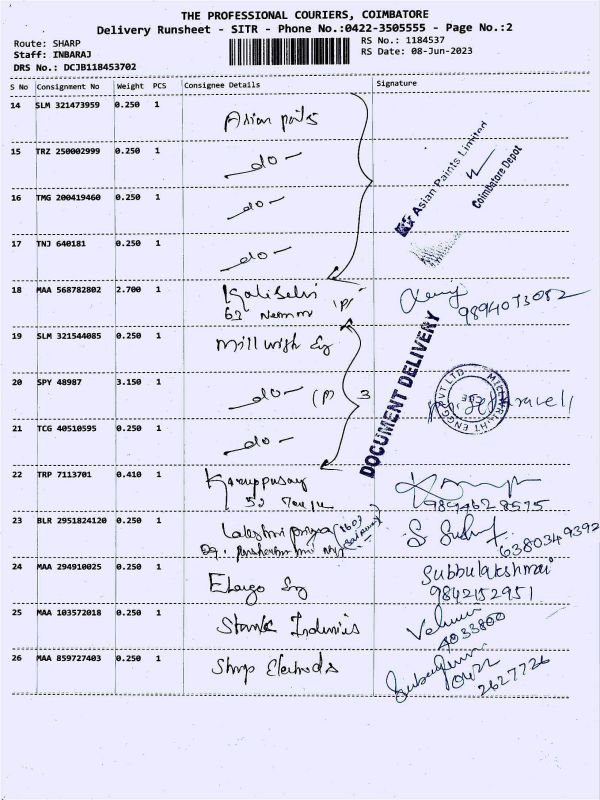 THE PROFESSIONAL COURIERS, COIMBATORE
Delivery Runsheet - SITR - Phone No.:0422-3505555 - Page No.:2
Route: SHARP
Staff: INBARAJ
DRS No.: DCJB118453702
RS No.: 1184537
RS Date: 08-Jun-2023
S No Consignment No Weight PCS Consignee Details Signature
14 SLM 321473959 0.250 1 Asian paits
15 TRZ 250002999 0.250 1 -do-
16 TMG 200419460 0.250 1 -do-
17 TNJ 640181 0.250 1 -do-
Asian Paints Limited
Coimbatore Depot
18 MAA 568782802 2.700 1 KaliSelvi (P)
63
9894073082
19 SLM 321544085 0.250 1 Mill
20 SPY 48987 3.150 1 -do- (P) 3
21 TCG 40510595 0.250 1 -do-
DOCUMENT DELIVERY
22 TRP 7113701 0.410 1 Karuppusay
52
9894628575
23 BLR 2951824120 0.250 1 Lakshmi priya
6380349392
24 MAA 294910025 0.250 1
Subbulakshmai
9842152951
25 MAA 103572018 0.250 1
4033800
26 MAA 859727403 0.250 1 Sharp Electrods
0422
2627726